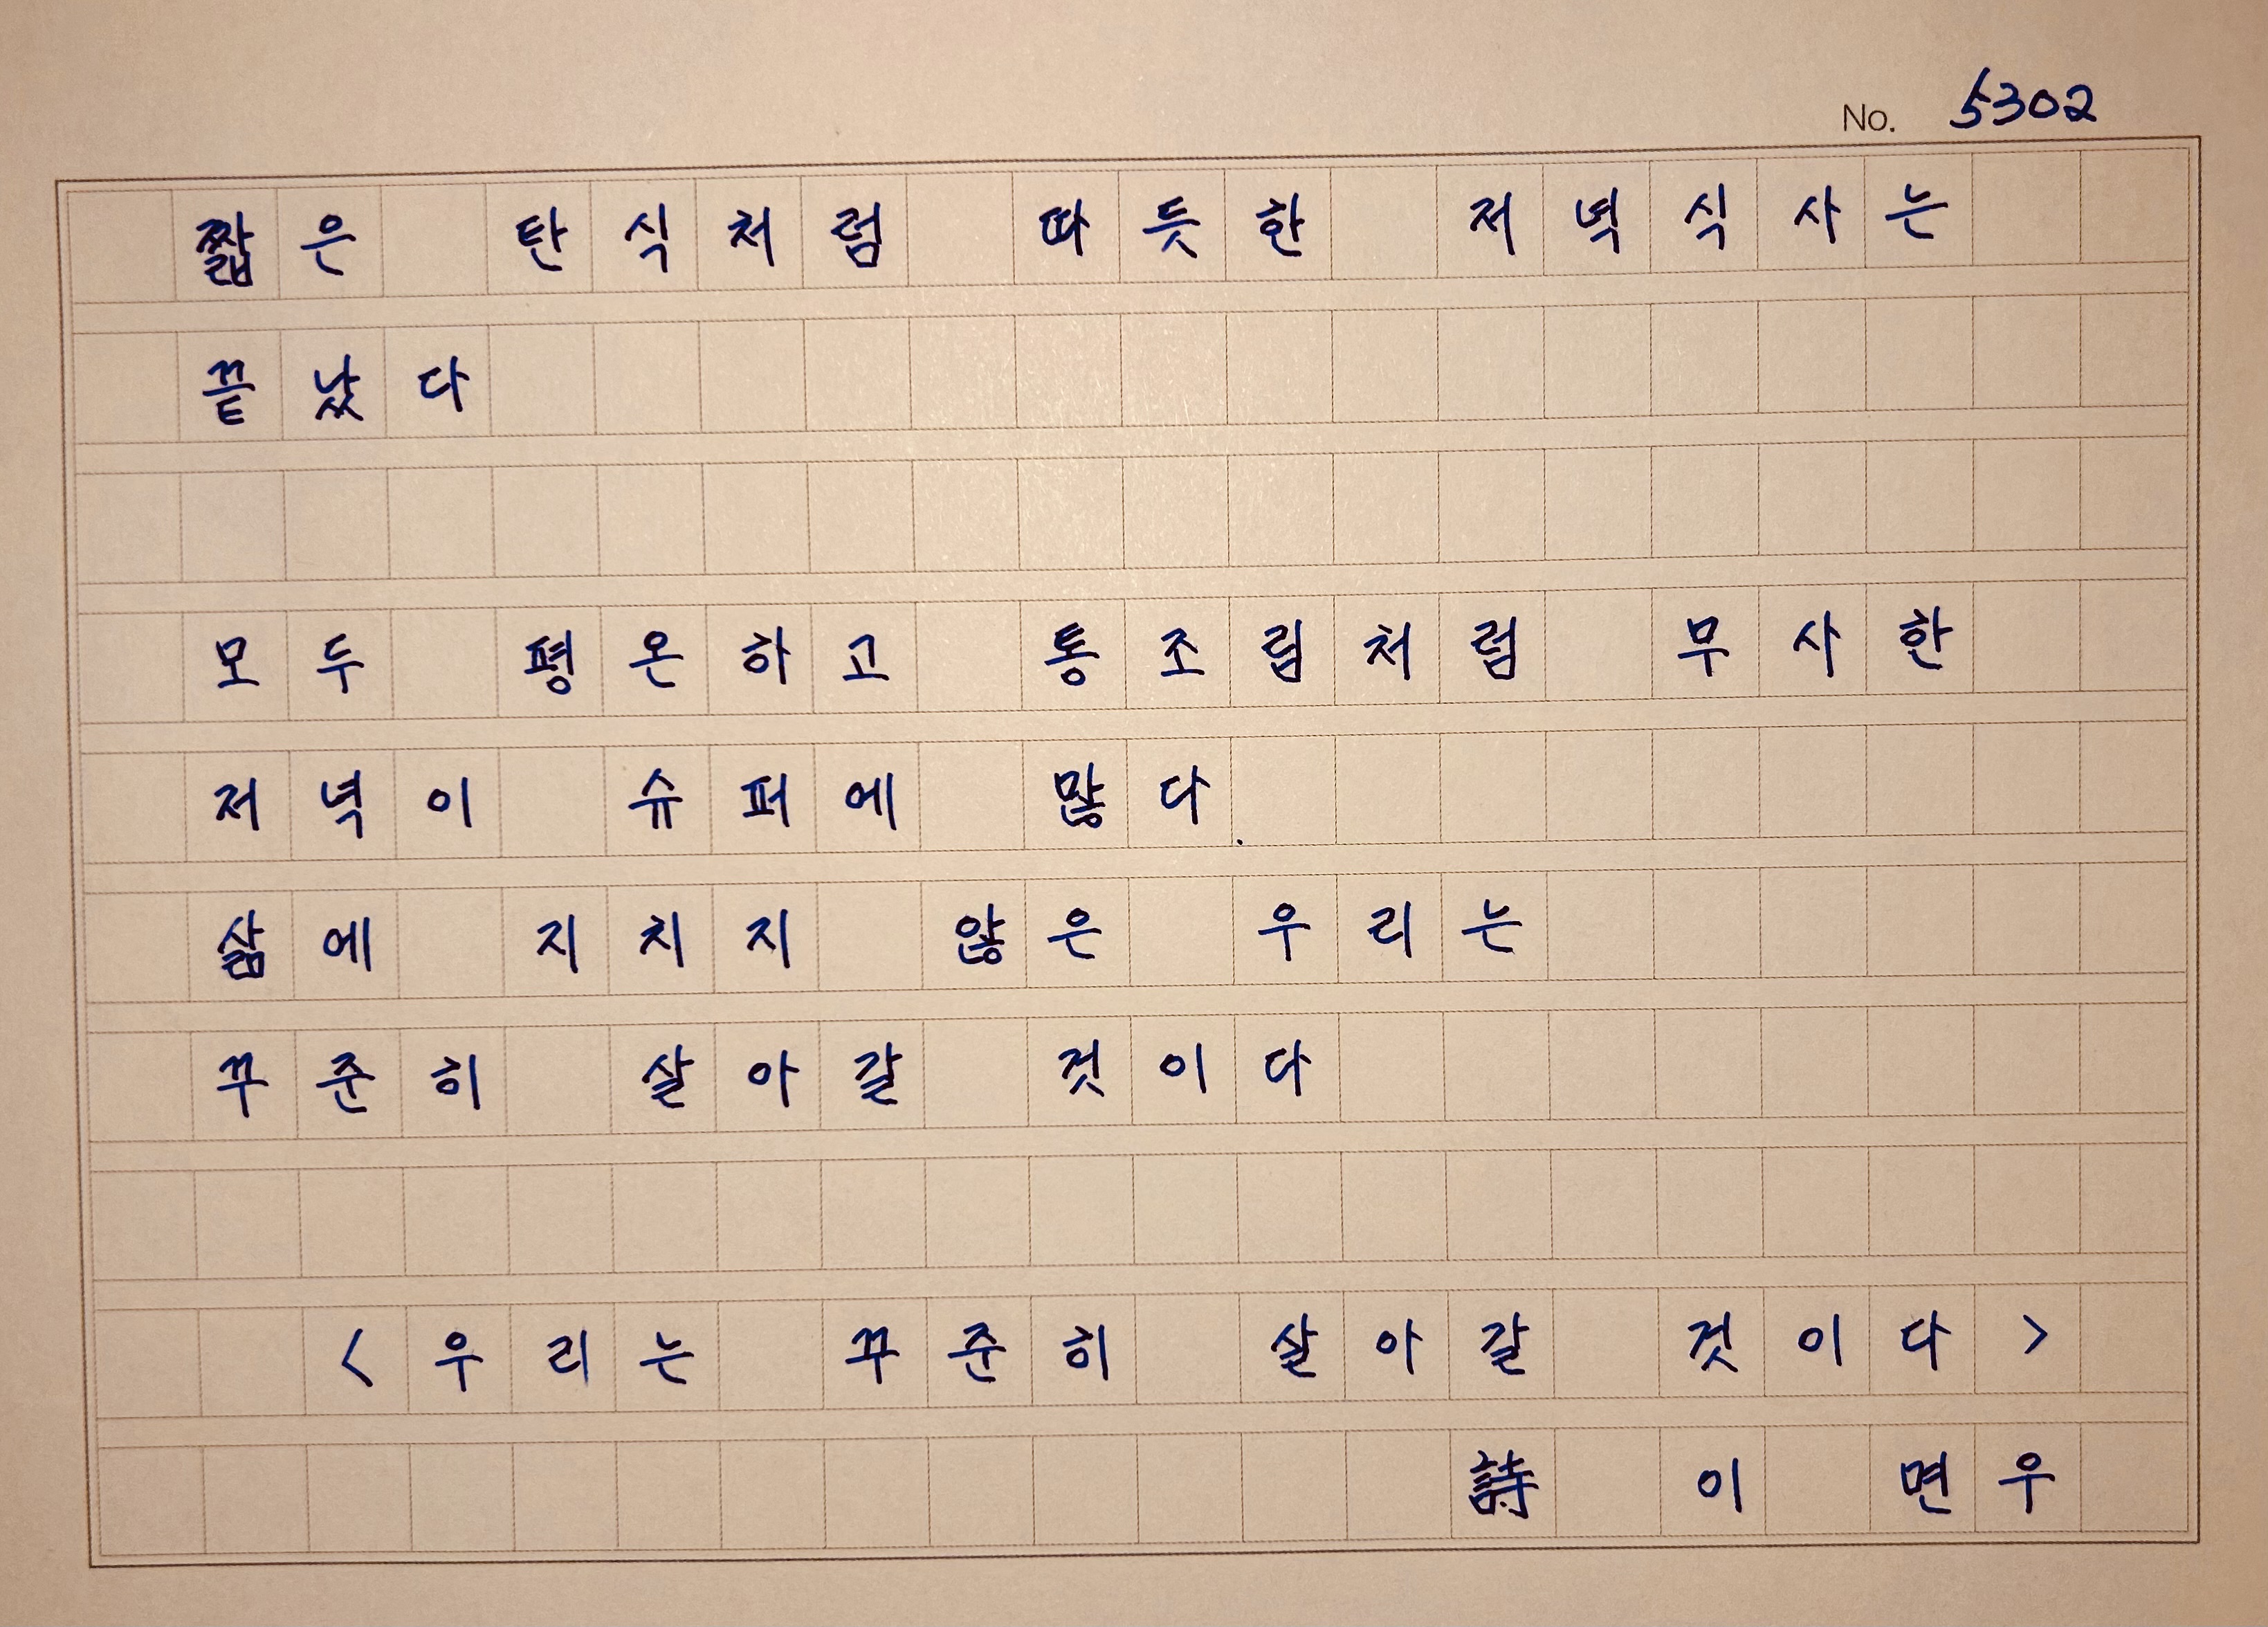 No. 5302
짧은 탄식처럼 따듯한 저녁식사는
끝났다
모두 평온하고 통조림처럼 무사한
저녁이 슈퍼에 많다.
삶에 지치지 않은 우리는
꾸준히 살아갈 것이다
<우리는 꾸준히 살아갈 것이다>
詩 이 면우